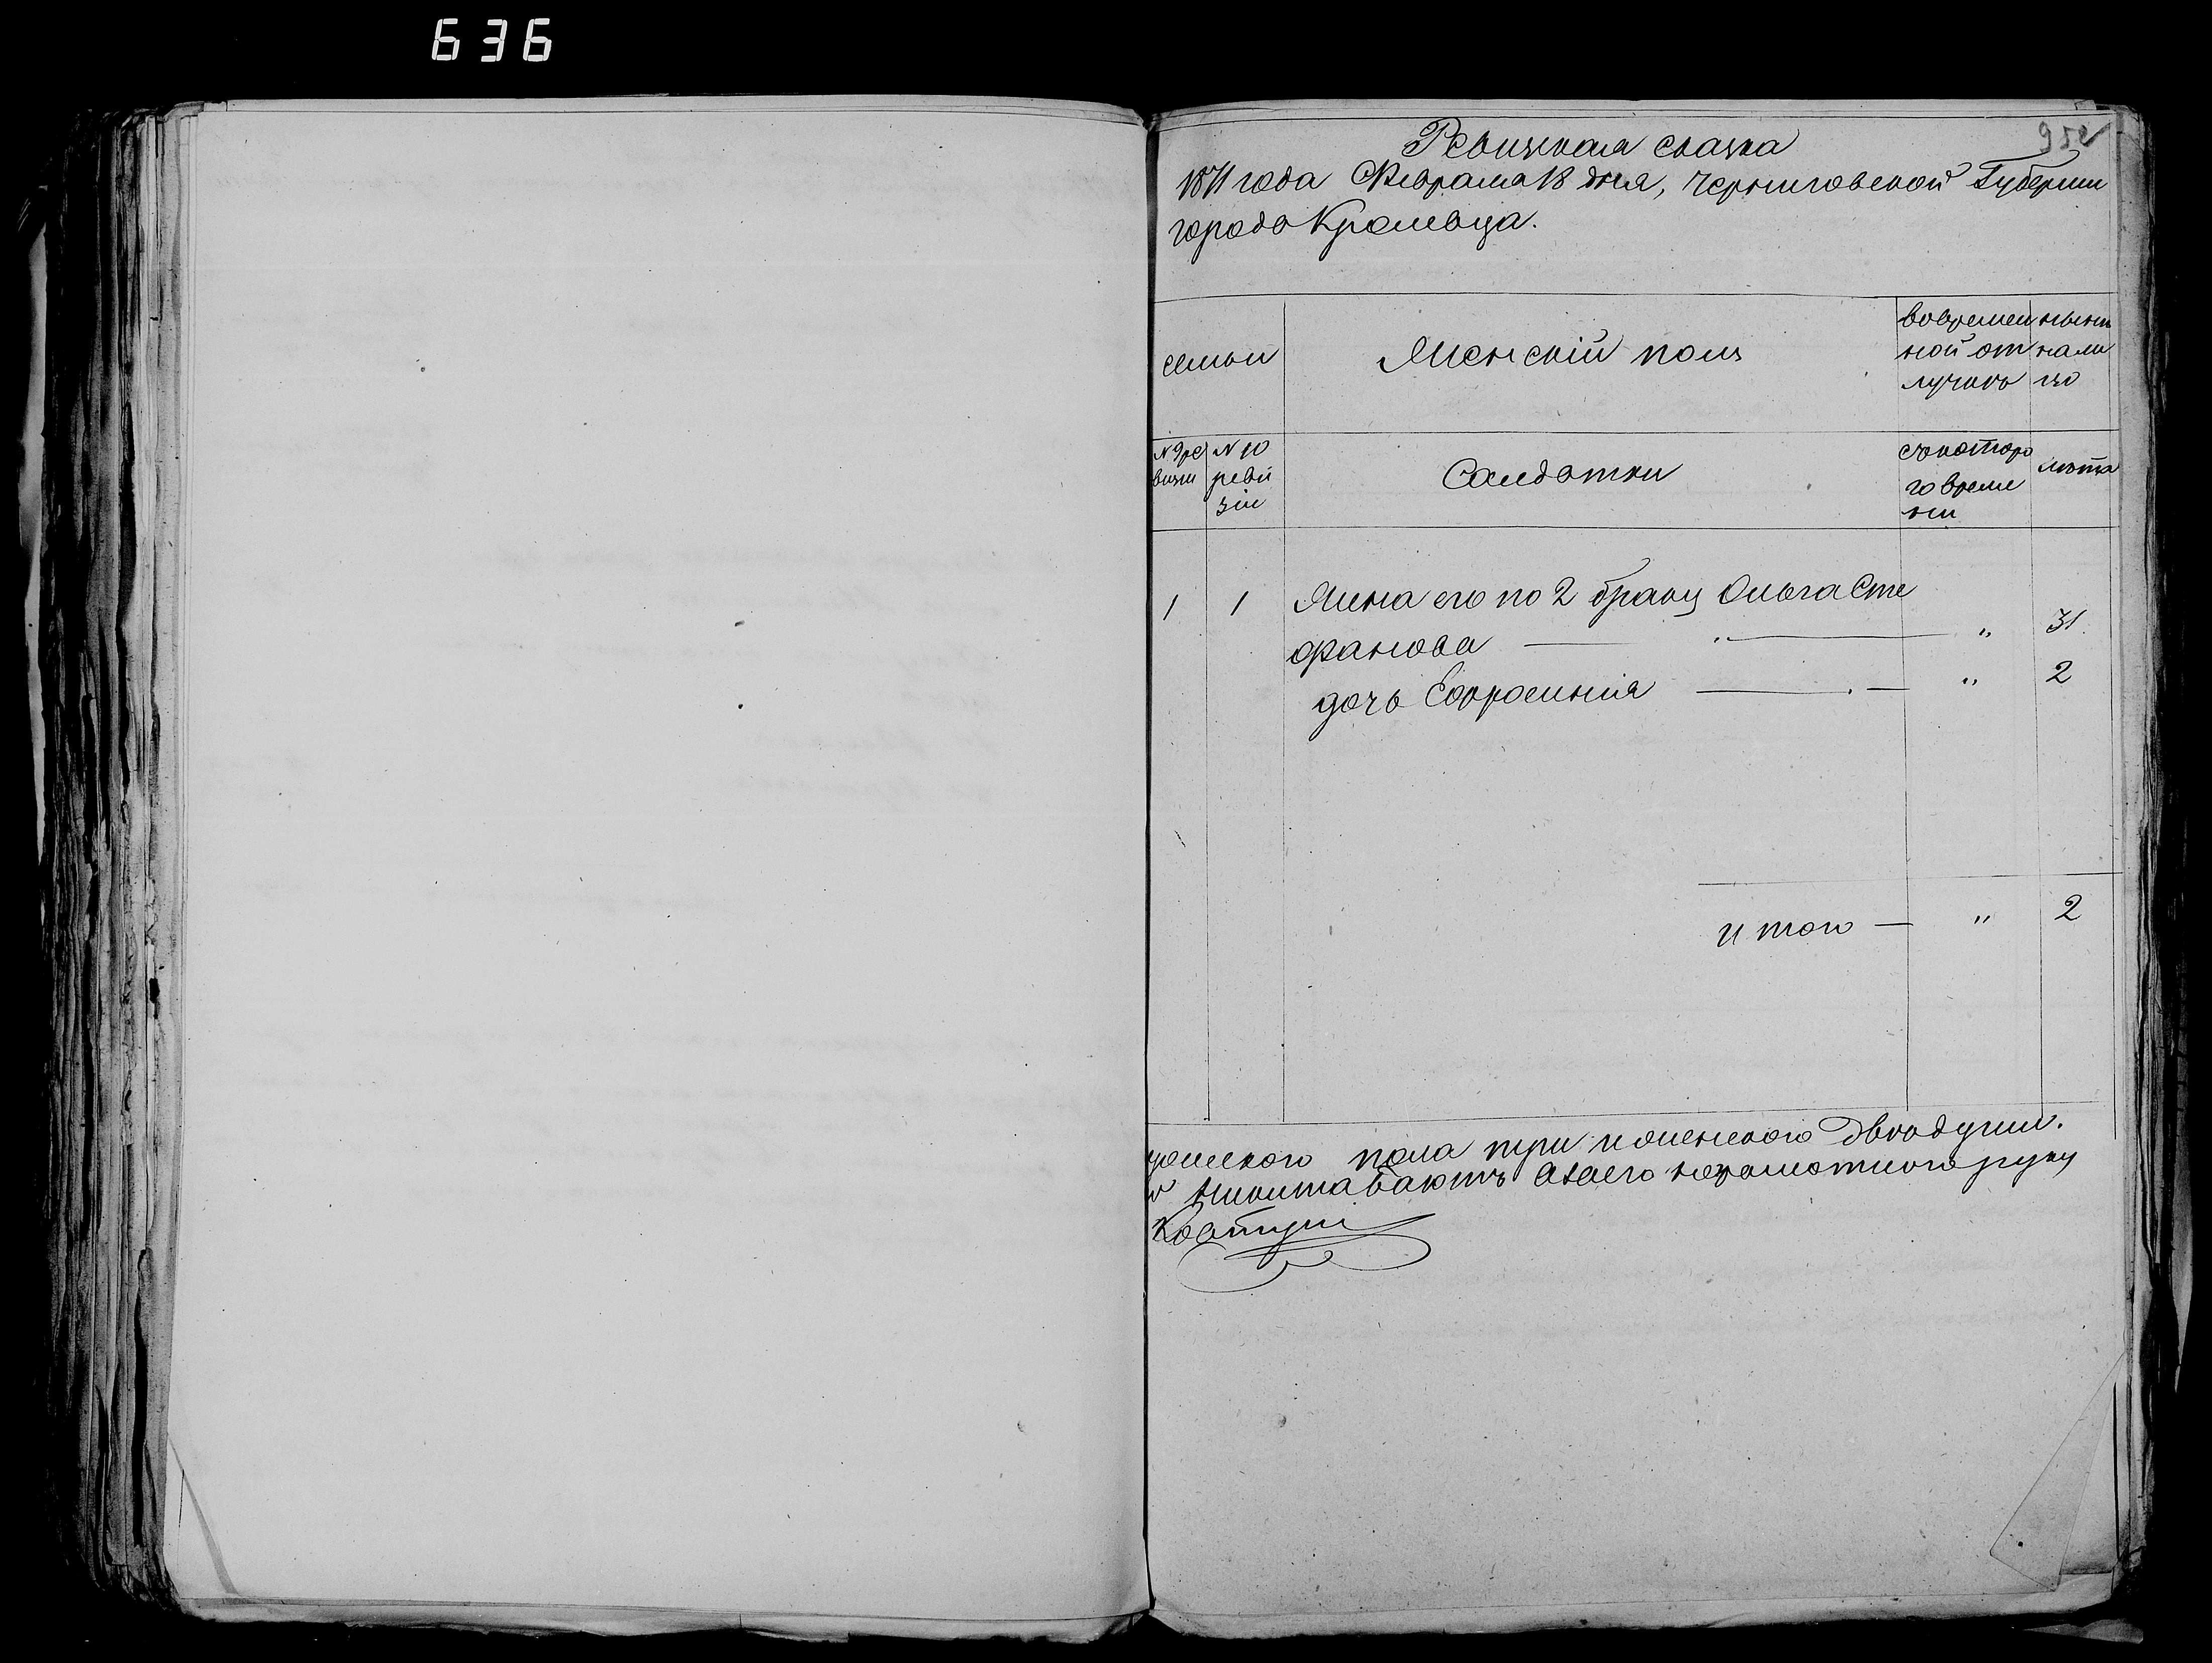 636
95
Ревизская сказка
1871 года Февраля 18 дня, Черниговской Губернии
города Кролевца.
семьи
Женскій полъ
во времен
ной от
лучкѣ
нынѣ
нали
цо
N 9 ре
визіи
N 10
реви
зіи
Солдатки
съ которо
го време
ни
лѣта
1 1 Жена его по 2 браку Ольга Сте
фанова — " 31
дочь Ефросинія — " 2
и того — " 2
мужескаго пола три и женскаго двѣ души.
Никита а за его неграмотного руку